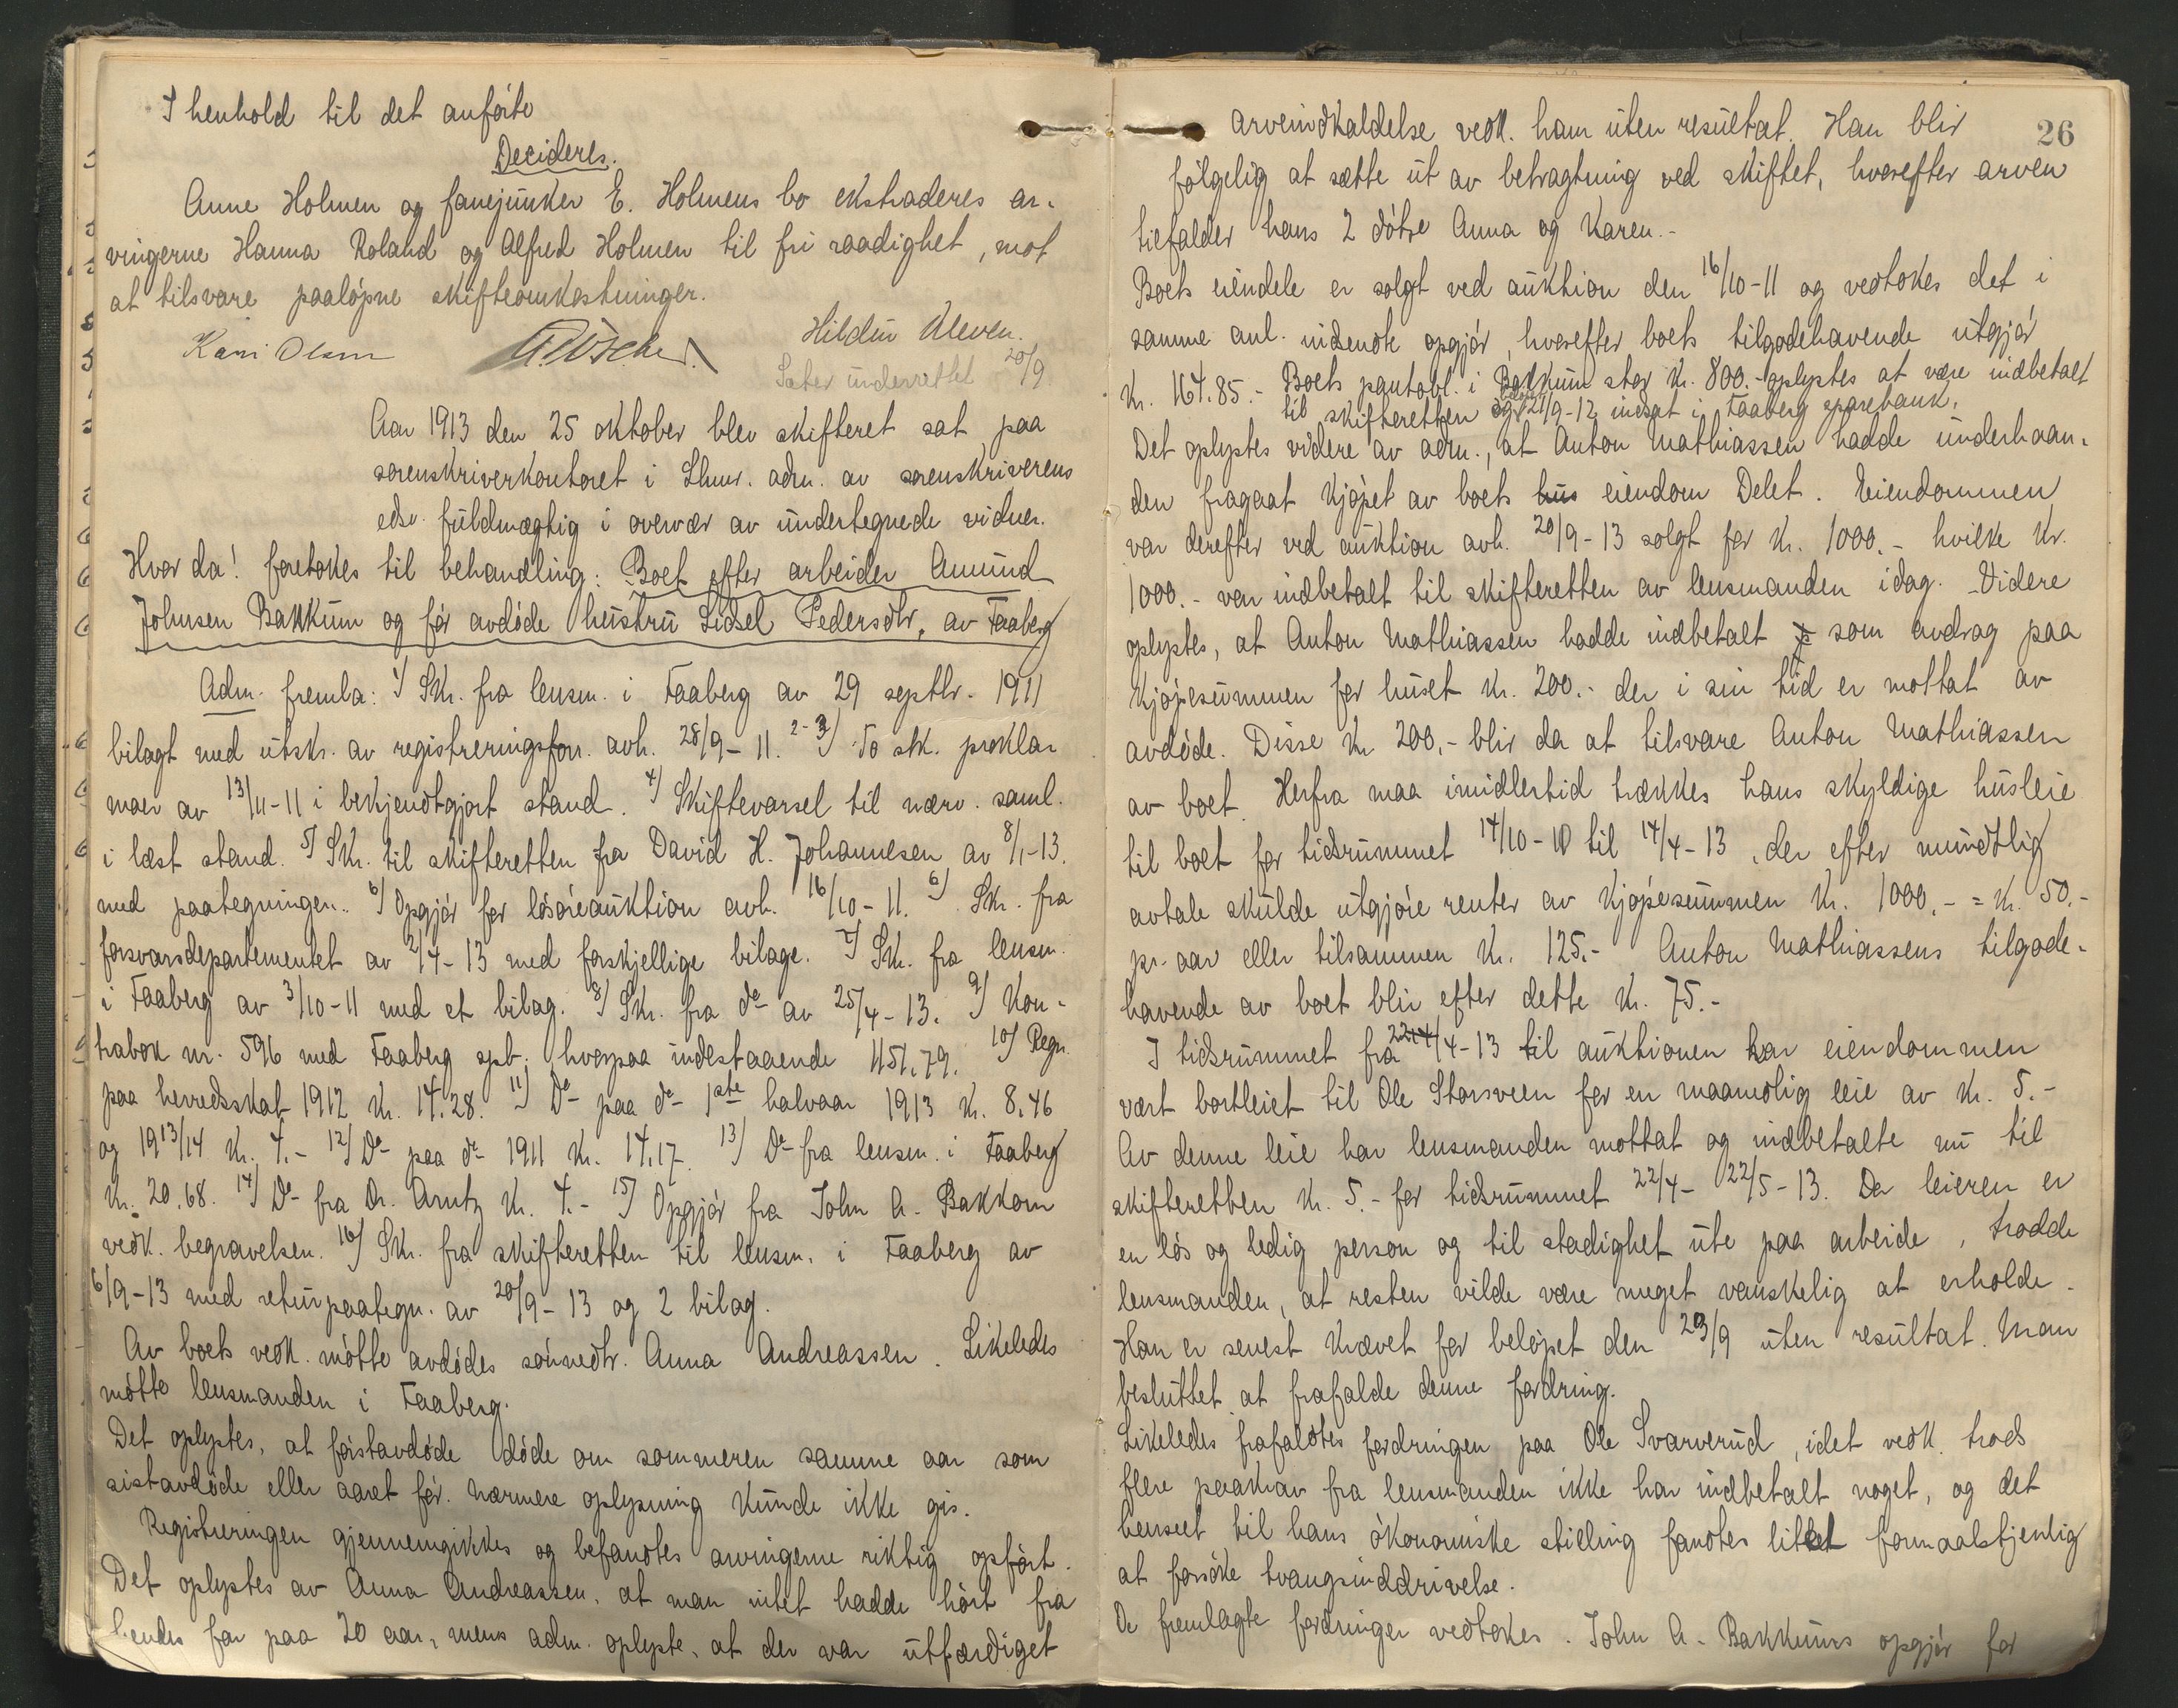 I henhold til det anførte
Decideres.
Anne Holmen og fanejunker E. Holmens bo ekstraderes ar-
vingerne Hanna Roland og Alfred Holmen til fri raadighet, mot
at tilsvare paaløpne skifteomkostninger.
Kari Olsen Hildur Kleven.
Sater underrettet 20/9
Aar 1913 den 25 oktober blev skifteret sat paa
sorenskriverkontoret i Lhmr. adm. av sorenskriverens
edsv. fuldmægtig i overvær av undertegnede vidner.
Hvor da! foretokes til behandling: Boet efter arbeider Amund
Johnsen Bakkum og før avdøde hustru Lidsel Pedersdtr, av Faaberg
Adm. fremla: 1) Skr. fra lensm. i Faaberg av 29 septbr. 1911
bilagt med utskr. av registreringsforr. avh. 28/9-11. 2-3) To stk. prokla-
maer av 13/11-11 i bekjendtgjort stand. 4) Skiftevarsel til nærv. saml.
i læst stand. 5) Skr. til skifteretten fra David H. Johannesen av 8/1-13.
med paategninger. 6) Opgjør for løsøreauktion avh. 16/10-11. 6) Skr. fra
forsvarsdepartementet av 2/4-13 med forskjellige bilage. 7) Skr. fra lensm.
i Faaberg av 3/10-11 med et bilag. 8) Skr. fra do av 25/4-13. 9) Kon-
trabok nr. 596 med Faaberg spb. hvorpaa indestaaende 451,79. 10) Regn.
paa herredsskat 1912 kr. 14.28. 11) Do paa do 1ste halvaar 1913 kr. 8,46
og 1913/14 kr. 4.- 12) Do paa do 1911 kr. 14,17. 13) Do fra lensm. i Faaberg
kr. 20,68. 14) Do fra Dr. Arntz kr. 4.- 15) Opgjør fra John A. Bakkom
vedk. begravelsen. 16) Skr. fra skifteretten til lensm. i Faaberg av
6/9-13 med returpaategn. av 20/9-13 og 2 bilag.
Av boets vedk. møtte avdødes sønnedtr. Anna Andreassen. Likeledes
møtte lensmanden i Faaberg.
Det oplystes, at førstavdøde døde om sommeren samme aar som
sistavdøde eller aaret før. Nærmere oplysning kunde ikke gis.
Registreringen gjennemgikkes og befandtes arvingerne riktig opført.
Det oplystes av Anna Andreassen, at man intet hadde hørt fra
hendes far paa 20 aar, mens adm. oplyste, at der var utfærdiget
26
arveindkaldelse vedk. ham uten resultat. Han blir
følgelig at sætte ut av betragtning ved skiftet, hvorefter arven
tilfalder hans 2 døtre Anna og Karen.-
Boets eiendele er solgt ved auktion den 16/10-11 og vedtokes det i
samme anl. indsendte opgjør, hvorefter boets tilgodehavende utgjør
kr. 164.85.- Boets pantobl. i Bakkum stor kr. 800.- oplystes at være indbetalt
til skifteretten og 21/9-12 indsat i Faaberg sparebank.
Det oplystes videre av adm., at Anton Mathiassen hadde underhaan-
den fragaat kjøpet av boets hus eiendom Delet. Eiendommen
var derefter ved auktion avh. 20/9-13 solgt for kr. 1000.- hvilke kr.
1000.- var indbetalt til skifteretten av lensmanden idag. Videre
oplystes, at Anton Mathiassen hadde indbetalt som avdrag paa
kjøpesummen for huset kr. 200.- der i sin tid er mottat av
avdøde. Disse kr. 200,- blir da at tilsvare Anton Mathiassen
av boet. Herfra maa imidlertid trækkes hans skyldige husleie
til boet for tidsrummet 14/10-10 til 14/4-13, der efter mundtlig
avtale skulde utgjøre renter av kjøpesummen kr. 1000.- = kr. 50.-
pr. aar eller tilsammen kr. 125.- Anton Mathiassens tilgode-
havende av boet blir efter dette kr. 75.-
I tidsrummet fra 22/4-13 til auktionen har eiendommen
vært bortleiet til Ole Storsveen for en maanedlig leie av kr. 5.-
Av denne leie har lensmanden mottat og indbetalte nu til
skifteretten kr. 5.- for tidsrummet 22/4- 22/5-13. Da leieren er
en løs og ledig person og til stadighet ute paa arbeide, trodde
lensmanden, at resten vilde være meget vanskelig at erholde.
Han er senest krævet for beløpet den 20/9 uten resultat. Man
besluttet at frafalde denne fordring.
Likeledes frafaldtes fordringen paa Ole Svarverud, idet vedk. trods
flere paakrav fra lensmanden ikke har indbetalt noget, og det
henseet til hans økonomiske stilling fandtes litet formaalstjenlig
at forsøke tvangsinddrivelse.
De fremlagte fordringer vedtokes. John A. Bakkums opgjør for